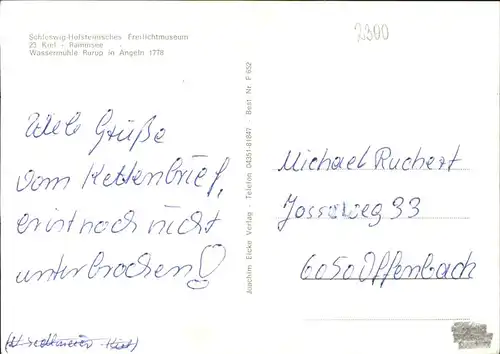 Schleswig-Holsteinisches Freilichtmuseum
23 Kiel - Rammsee
Wassermühle Rurup in Angeln 1778
2300
Viele Grüße
vom Kettenbrief,
er ist noch nicht
unterbrochen!
Michael Ruchert
33
6050 Offenbach
Joachim Eicke Verlag - Telefon 04351-81847 - Best Nr F 652